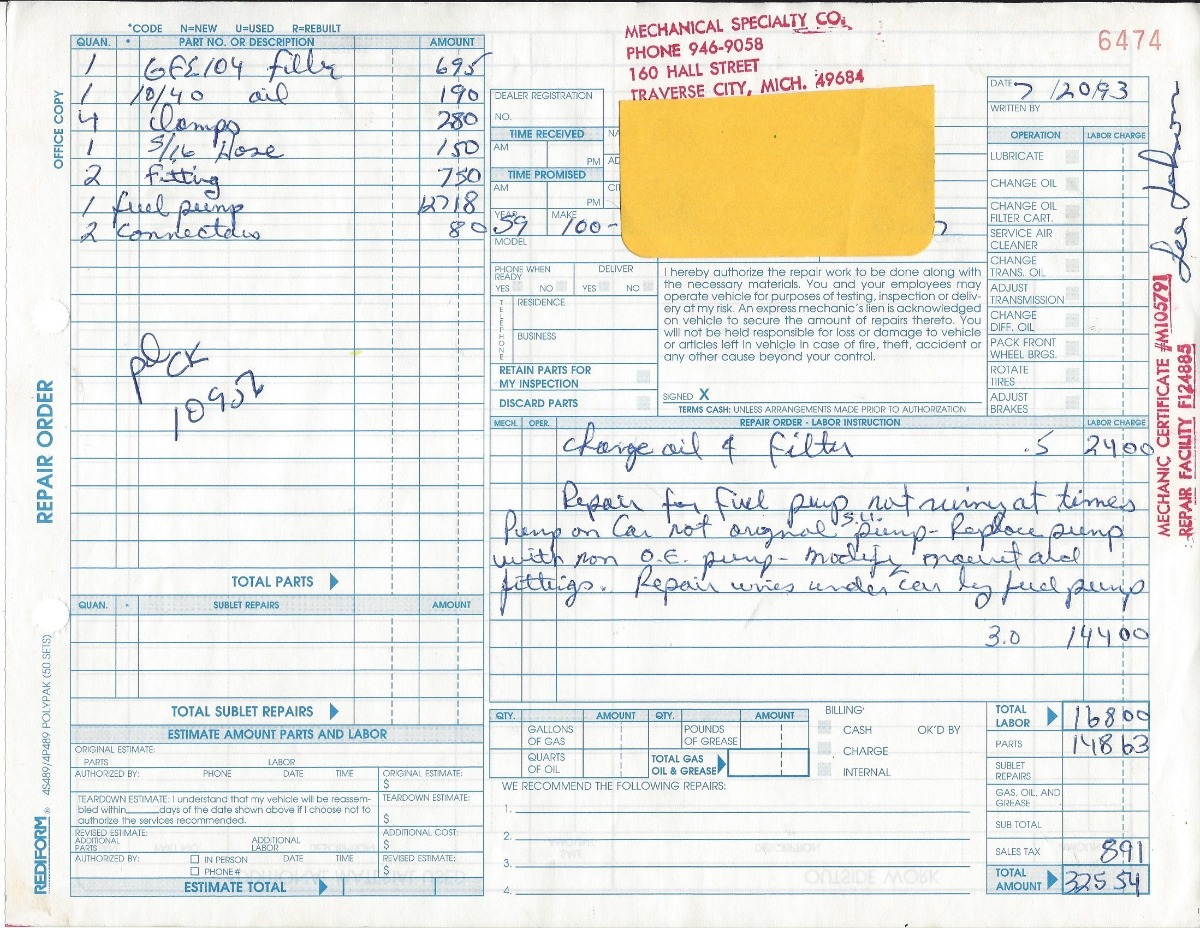 *CODE N=NEW U=USED R=REBUILT
QUAN. * PART NO. OR DESCRIPTION AMOUNT
1 GFE104 filter 695
1 10/40 oil 190
4 Clamps 280
1 5/16 Hose 150
2 Fitting 750
1 fuel pump 12718
2 Connectors 80
pd CK
10956
TOTAL PARTS
QUAN. * SUBLET REPAIRS AMOUNT
TOTAL SUBLET REPAIRS
ESTIMATE AMOUNT PARTS AND LABOR
ORIGINAL ESTIMATE:
PARTS LABOR
AUTHORIZED BY: PHONE DATE TIME ORIGINAL ESTIMATE:
$
TEARDOWN ESTIMATE: I understand that my vehicle will be reassem- TEARDOWN ESTIMATE:
bled within days of the date shown above if I choose not to
authorize the services recommended. $
REVISED ESTIMATE: ADDITIONAL COST:
ADDITIONAL PARTS ADDITIONAL LABOR $
AUTHORIZED BY: IN PERSON DATE TIME REVISED ESTIMATE:
PHONE# $
ESTIMATE TOTAL
OFFICE COPY
REPAIR ORDER
REDIFORM ® 4S489/4P489 POLYPAK (50 SETS)
MECHANICAL SPECIALTY CO.
PHONE 946-9058
160 HALL STREET
TRAVERSE CITY, MICH. 49684
6474
DEALER REGISTRATION
NO.
TIME RECEIVED NA
AM PM AD
TIME PROMISED
AM PM CI
YEAR 59 MAKE 100-
MODEL
PHONE WHEN READY DELIVER
YES NO YES NO
TELEPHONE
RESIDENCE
BUSINESS
RETAIN PARTS FOR
MY INSPECTION
DISCARD PARTS
I hereby authorize the repair work to be done along with
the necessary materials. You and your employees may
operate vehicle for purposes of testing, inspection or deliv-
ery at my risk. An express mechanic's lien is acknowledged
on vehicle to secure the amount of repairs thereto. You
will not be held responsible for loss or damage to vehicle
or articles left in vehicle in case of fire, theft, accident or
any other cause beyond your control.
SIGNED X
TERMS CASH: UNLESS ARRANGEMENTS MADE PRIOR TO AUTHORIZATION
DATE 7/20/93
WRITTEN BY
OPERATION LABOR CHARGE
LUBRICATE
CHANGE OIL
CHANGE OIL
FILTER CART.
SERVICE AIR
CLEANER
CHANGE
TRANS. OIL
ADJUST
TRANSMISSION
CHANGE
DIFF. OIL
PACK FRONT
WHEEL BRGS.
ROTATE
TIRES
ADJUST
BRAKES
MECHANIC CERTIFICATE #M105791
REPAIR FACILITY F124885
Johnson
MECH. OPER. REPAIR ORDER - LABOR INSTRUCTION LABOR CHARGE
Change oil & Filter .5 2400
Repair for Fuel pump not runing at times
Pump on Car not orignal S.U. pump - Replace pump
with non O.E. pump - modify mount and
fittings. Repair wires under car by fuel pump
3.0 14400
QTY. AMOUNT QTY. AMOUNT
GALLONS OF GAS POUNDS OF GREASE
QUARTS OF OIL TOTAL GAS OIL & GREASE
BILLING
CASH OK'D BY
CHARGE
INTERNAL
WE RECOMMEND THE FOLLOWING REPAIRS:
1.
2.
3.
4.
TOTAL LABOR 16800
PARTS 14863
SUBLET REPAIRS
GAS, OIL, AND GREASE
SUB TOTAL
SALES TAX 891
TOTAL AMOUNT 32554